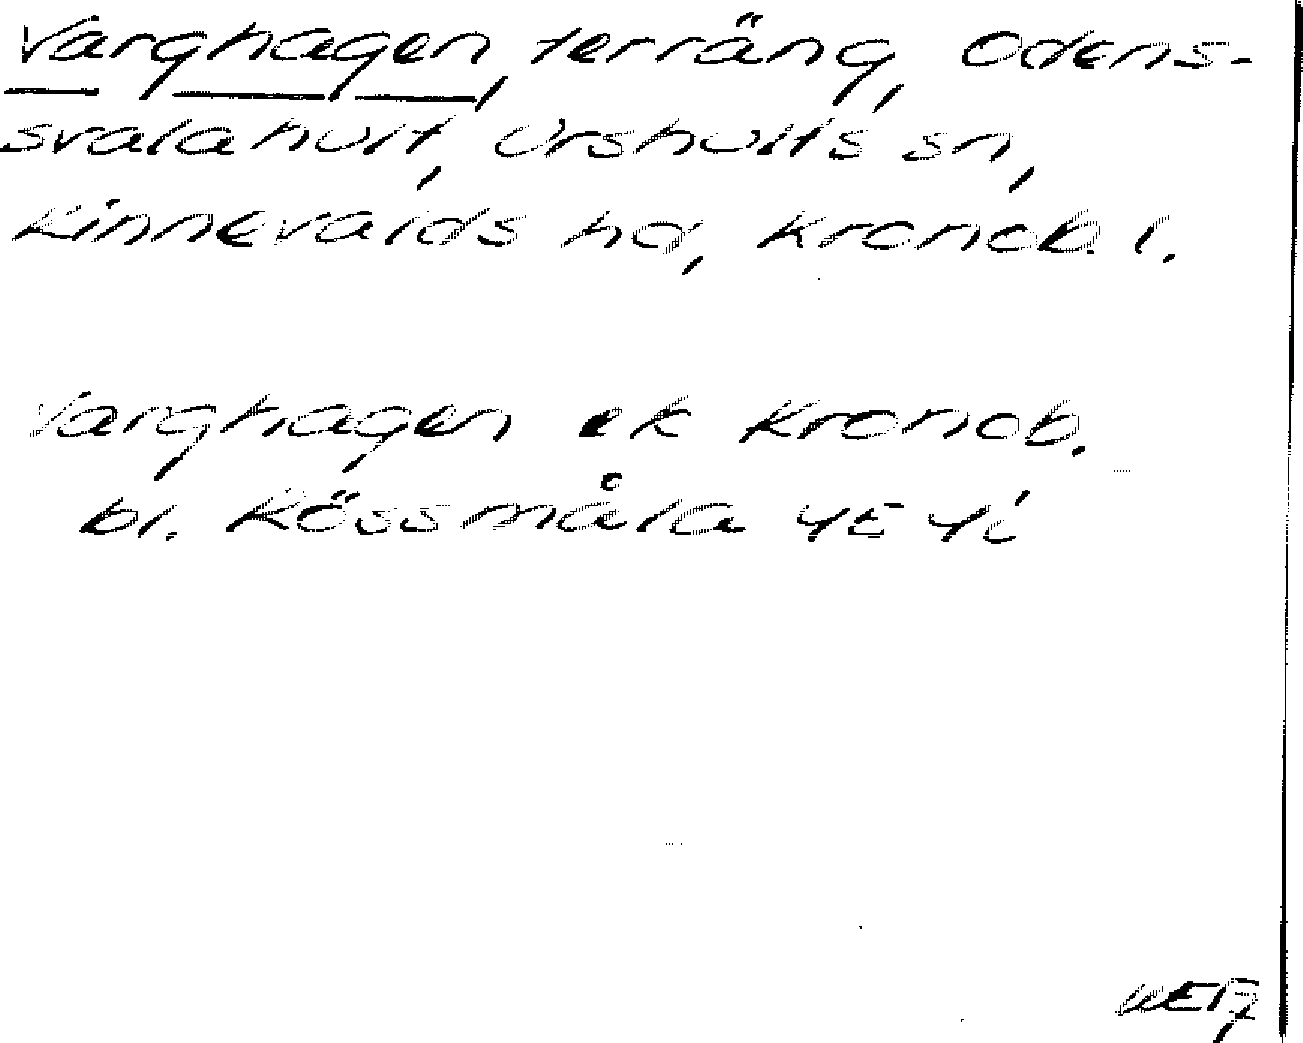 Varghagen, terräng, Odens-
svalahult, Urshults sn,
Kinnevalds hd, Kronob. l.
Varghagen ek Kronob.
bl. Kössmåla 4E 4i